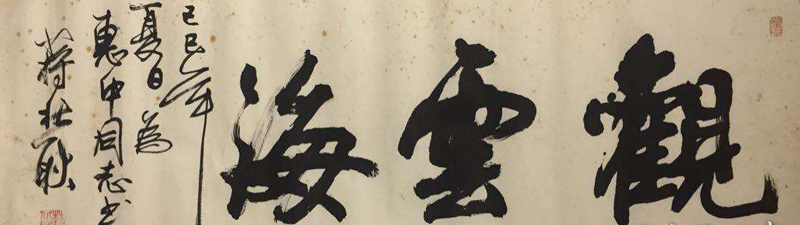 觀雲海
己巳年
夏日為
惠中同志書
蔣杜耿